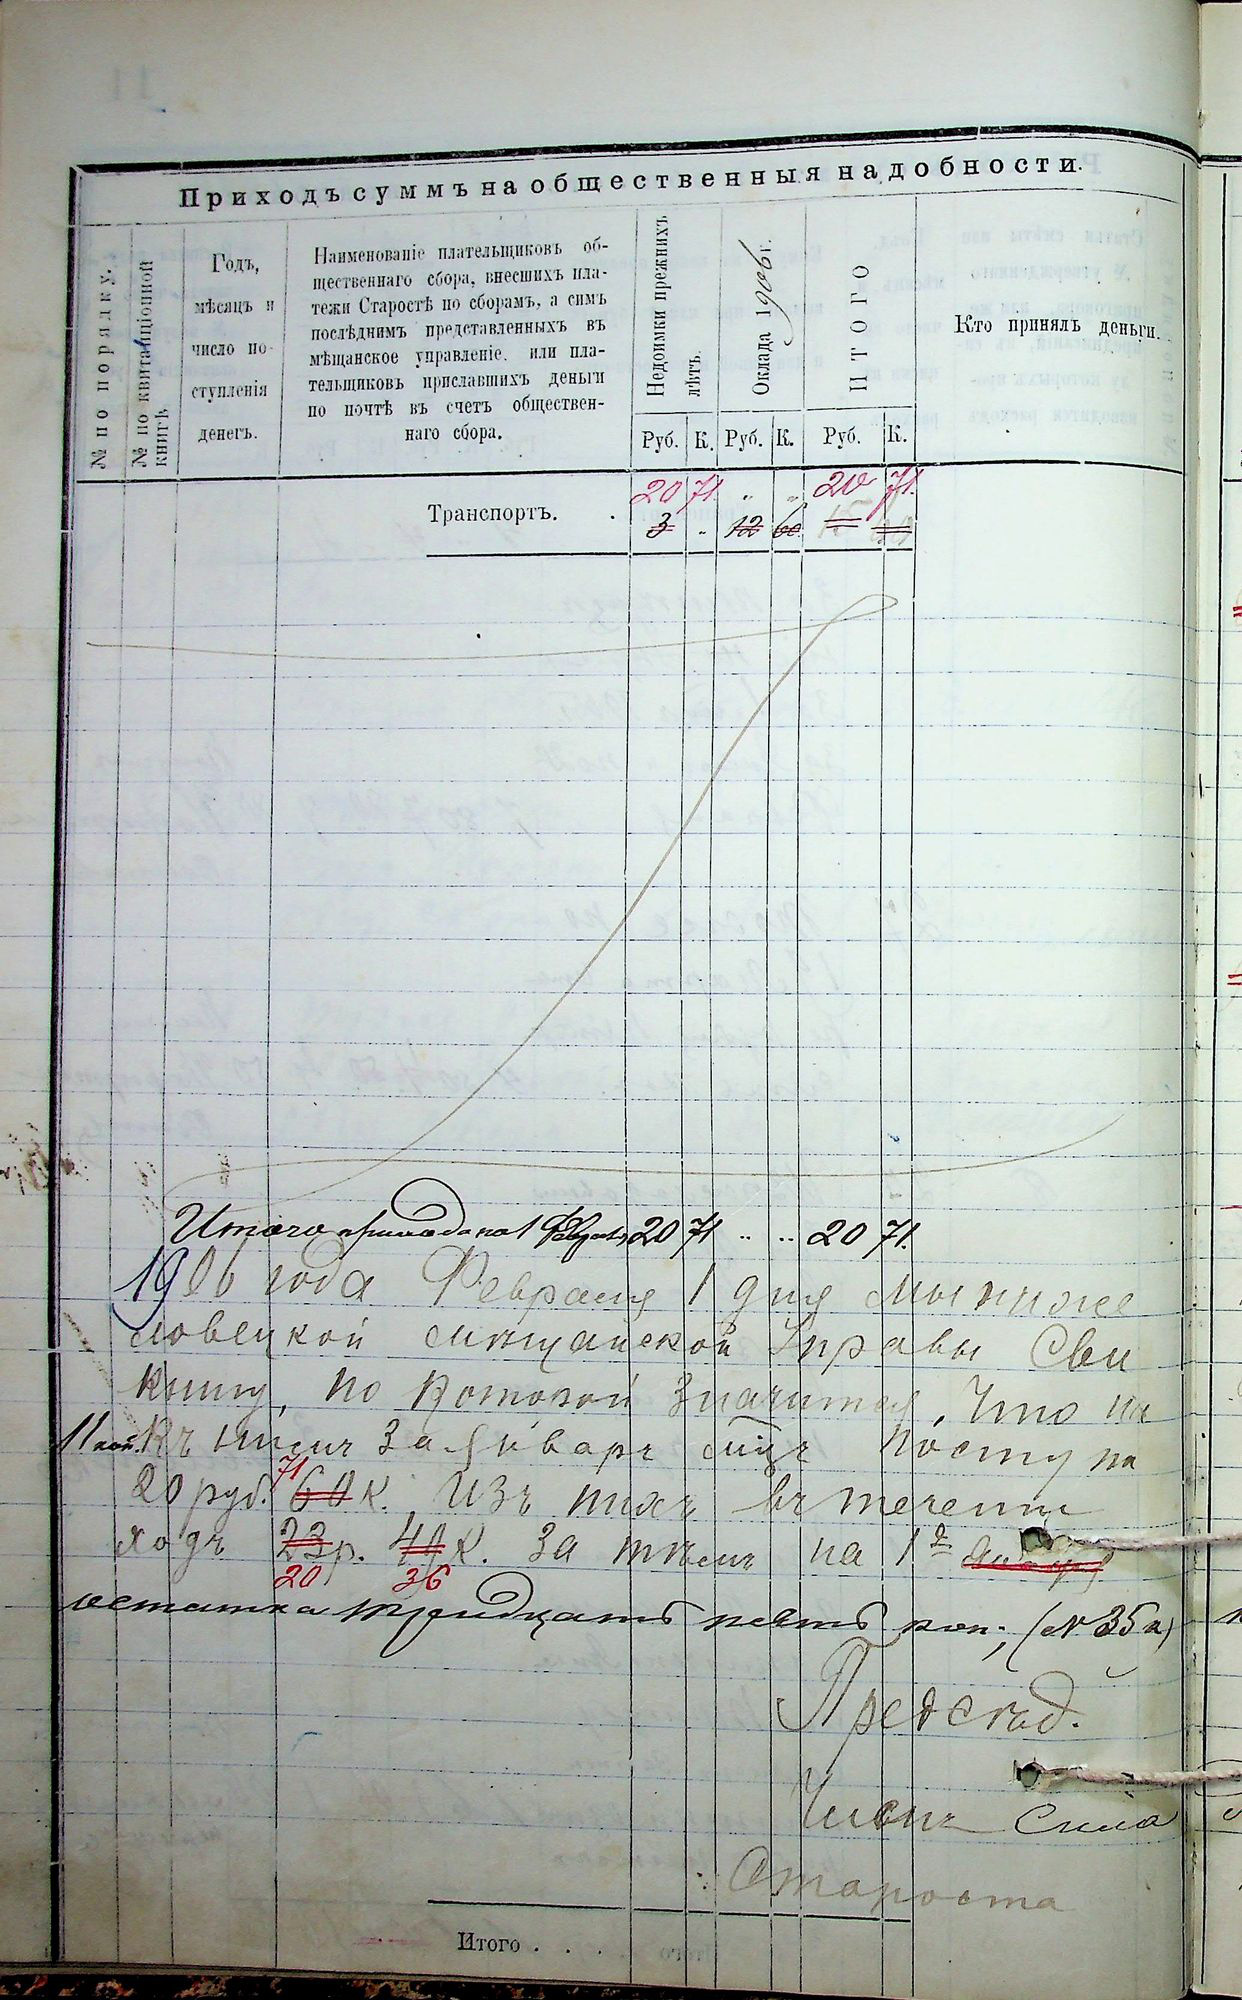 Приходъ суммъ на общественныя надобности.
№ по порядку.
№ по квитанціонной
книгѣ
Годъ,
мѣсяцъ и
число по-
ступленія
денегъ.
Наименованіе плательщиковъ об-
щественнаго сбора, внесшихъ пла-
тежи Старостѣ по сборамъ, а симъ
послѣднимъ представленныхъ въ
мѣщанское управленіе, или пла-
тельщиковъ приславшихъ деньги
по почтѣ въ счетъ обществен-
наго сбора.
Недоимки прежнихъ
лѣтъ.
Оклада 1906 г.
ИТОГО
Кто принялъ деньги.
Руб. К. Руб. К. Руб. К.
20 71 " " 20 71.
Транспортъ. 3 - 12 60
Итого прихода по 1 Февраля 20 71 " " 20 71.
1906 года Февраля 1 дня мы ниже
ловецкой мѣщанской Управы Сви
книгу, по которой значится, что на
11 коп. къ нимъ за Январь мцъ посту па
20 руб. 71 60 к. Изъ нихъ въ теченіи
ходъ 23 р. 40 к. За тѣмъ на 1е
20 36
остатка тридцать пять коп., (№ 35 к)
Предсѣд.
Членъ Сила
Староста
Итого . . .